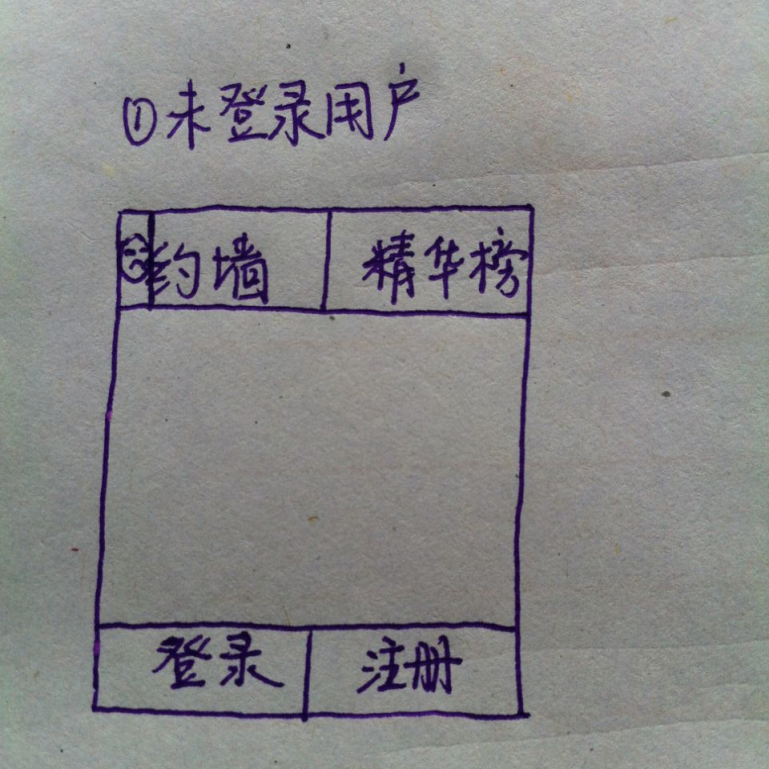 ①未登录用户
约墙 精华榜
登录 注册